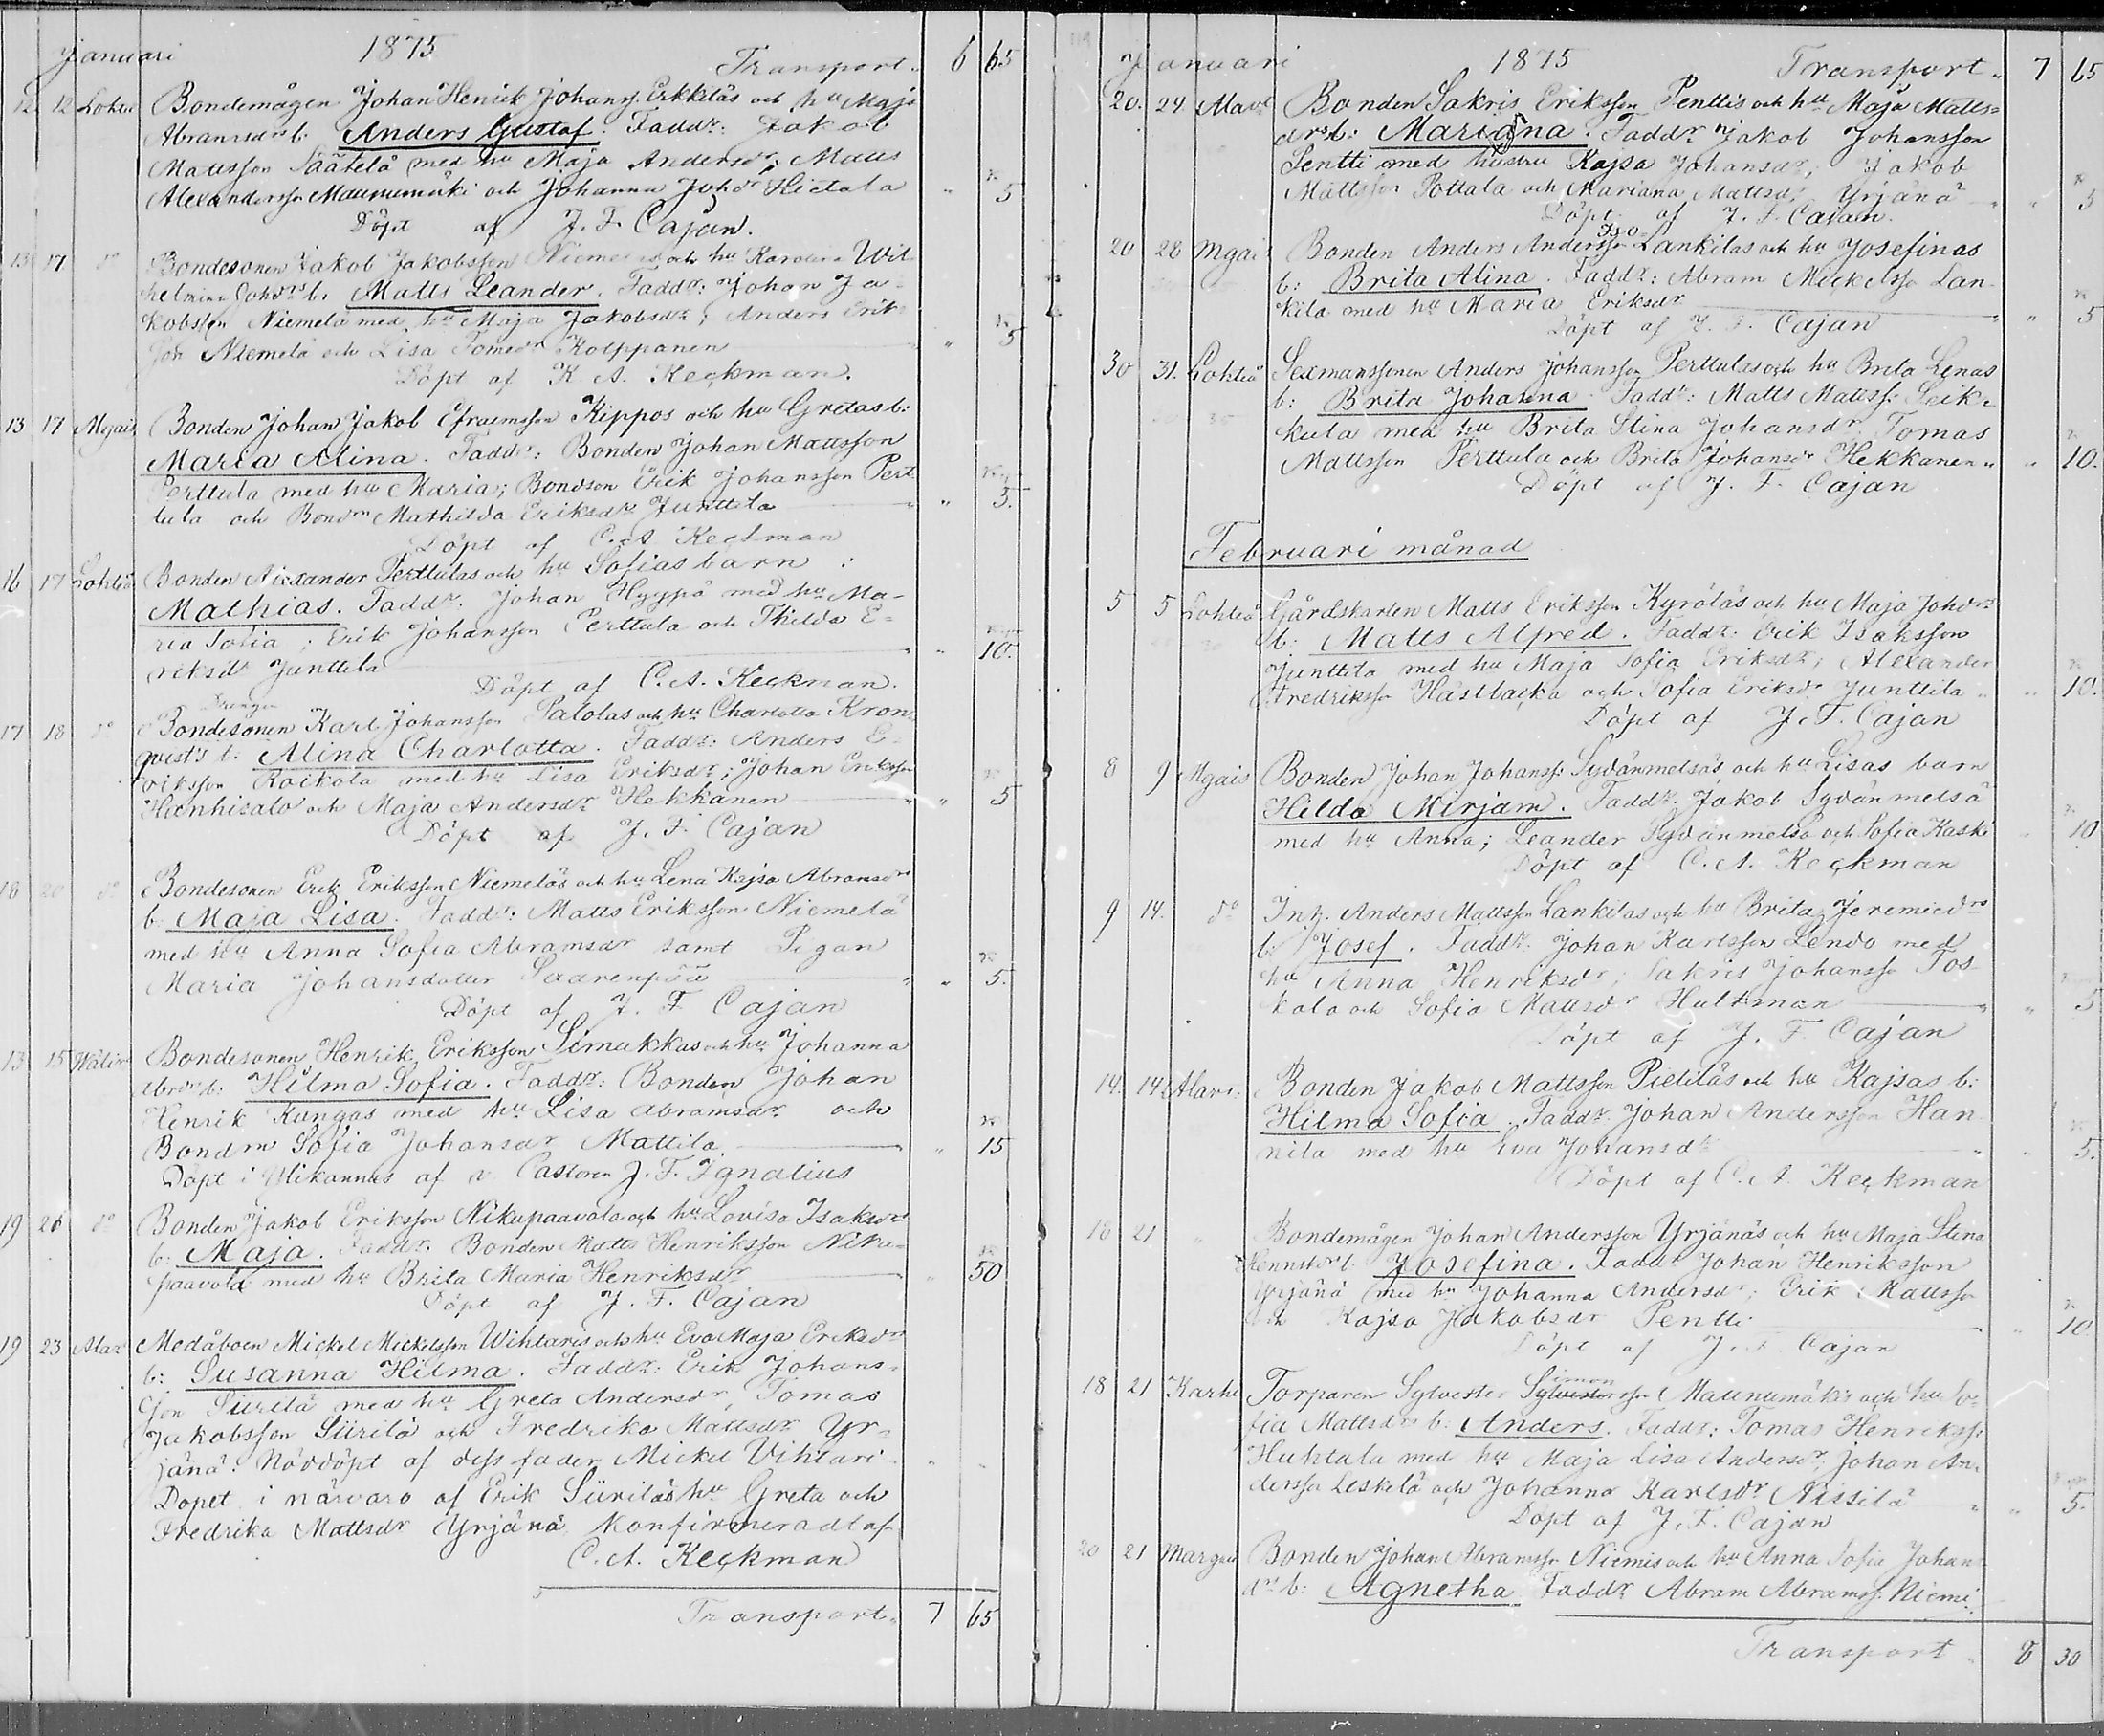 Januari 1875 Transport 6 65
12 12 Lohteå Bondemågen Johan Henrik Johanss. Erkkiläs och hu Maja
Abramsdrs b. Anders Gustaf. Faddr: Jakob
Mattsson Säätelä med hu Maja Andersdr; Matts
Alexandersson Maunumäki och Johanna Johdr Hietala " 5
Döpt af J. F. Cajan.
13 17 do Bondesonen Jakob Jakobsson Niemeläs och hu Karolina Wil
helmina Johdrs b. Matts Leander. Faddr: Johan Ja-
kobsson Niemelä med hu Maja Jakobsdr; Anders Erik-
son Niemelä och Lisa Tomedr Kolppanen " 5
Döpt af K. A. Keckman.
13 17 Mgais Bonden Johan Jakob Efraimsson Kippos och hu Gretas b:
Maria Alina. Faddr: Bonden Johan Mattsson
Perttula med hu Maria; Bondson Erik Johansson Pert
tula och Bondm Mathilda Eriksdr Junttila " 5.
Döpt af C. A. Keckman
16 17 Lohteå Bonden Alexander Perttulas och hu Sofias barn :
Mathias. Faddr. Johan Hyyppä med hu Ma-
ria Sofia; Erik Johansson Perttula och Thilda E-
riksdr Junttila " 10.
Döpt af C. A. Keckman.
Drengen
17 18 do Bondesonen Karl Johansson Salolas och hu Charlotta Kron-
qvist's b. Alina Charlotta. Faddr: Anders E-
riksson Roikola med hu Lisa Eriksdr; Johan Eriksson
Hienhisalo och Maja Andersdr Hekkanen " 5
Döpt af J. F. Cajan
18 20 do Bondesonen Erik Eriksson Niemeläs och hu Lena Kajsa Abramsdrs
b. Maja Lisa. Faddr: Matts Eriksson Niemelä
med hu Anna Sofia Abramsdr samt Pigan
Maria Johansdotter Saarenpää " 5.
Döpt af J. F. Cajan
13 15 Wälin Bondesonen Henrik Eriksson Simukkas och hu Johanna
Abrdrs b. Hilma Sofia. Faddr: Bonden Johan
Henrik Kungas med hu Lisa Abramsdr och
Bondm Sofia Johansdr Mattila. " 15
Döpt i Ulikannus af v. Pastoren J. F. Ignatius
19 26 do Bonden Jakob Eriksson Nikupaavola och hu Lovisa Isaksdrs
b: Maja. Faddr. Bonden Matts Henriksson Niku-
paavola med hu Brita Maria Henriksdr " 50
Döpt af J. F. Cajan
19 23 Alav Medåboen Mickel Mickelsson Wihtaris och hu Eva Maja Eriksdrs
b: Susanna Hilma. Faddr: Erik Johans-
son Siirilä med hu Greta Andersdr, Tomas
Jakobsson Siirilä och Fredrika Mattsdr Yr-
jänä. Nöddöpt af dess fader Mickel Vihtari
Dopet i närvaro af Erik Siiriläs hu Greta och
Fredrika Mattsdr Yrjänä Konfirmeradt af
C. A. Keckman
Transport 7 65
Januari 1875 Transport 7 65
20. 24. Alav Bonden Sakris Eriksson Penttis och hu Maja Matts-
drs b: Mariana. Faddr Jakob Johansson
Pentti med hustru Kajsa Johansdr; Jakob
Mattsson Pottala och Mariana Mattsdr Yrjänä " 5
Döpt af J. F. Cajan.
Iso
20 28 Mgais Bonden Anders Andersson Lankilas och hu Josefinas
b: Brita Alina. Faddr: Abram Mickelsso Lan-
kila med hu Maria Eriksdr " 5
Döpt af J. F. Cajan
30 31. Lohteå Sexmanssonen Anders Johansson Perttulas och hu Brita Lenas
b: Brita Johanna. Faddr: Matts Matss: Leik-
kula med hu Brita Stina Johansdr Tomas
Mattsson Perttula och Brita Johansdr Hekkanen " 10.
Döpt af J. F. Cajan
Februari månad
5 5 Lohteå Gårdskarlen Matts Eriksson Kyröläs och hu Maja Johdrs
b: Matts Alfred. Faddr. Erik Isaksson
Junttila med hu Maja Sofia Eriksdr; Alexander
Fredriksso Hästbacka och Sofia Eriksdr Junttila " 10.
Döpt af J. F. Cajan
8 9 Mgais Bonden Johan Johanss: Sydänmetsäs och hu Lisas barn
Hilda Mirjam. Faddr. Jakob Sydänmetsä
med hu Anna; Leander Sydänmetsä och Sofia Kaski " 10
Döpt af C. A. Keckman
9 14. do Inh. Anders Mattsson Lankilas och hu Brita Jeremiedrs
b: Josef. Faddr: Johan Karlsson Lendo med
hu Anna Henriksdr; Sakris Johansso Tos-
kala och Sofia Mattsdr Hultman " 5
Döpt af J. F. Cajan
14. 14 Alavi: Bonden Jakob Mattsson Pietiläs och hu Kajsas b:
Hilma Sofia. Faddr Johan Andersson Han
nila med hu Eva Johansdr " 5.
Döpt af C. A. Keckman
18 21 " Bondemågen Johan Andersson Yrjänäs och hu Maja Stina
Henrikdrs b. Josefina. Faddr Johan Henriksson
Yrjänä med hu Johanna Andersdr; Erik Mattsso
och Kajsa Jakobsdr Pentti " 10
Döpt af J. F. Cajan
Simon
18 21 Karhi Torparen Sylvester Sylvestersson Maunumäkis och hu So-
fia Mattsdrs b: Anders. Faddr: Tomas Henrikss:
Huhtala med hu Maja Lisa Andersdr, Johan An-
dersso Leskelä och Johanna Karlsdr Nissilä " 5.
Döpt af J. F. Cajan
20 21 Margais Bonden Johan Abramsso Niemis och hu Anna Sofia Johans
drs b: Agnetha Faddr Abram Abramss: Niemi
Transport 8 30